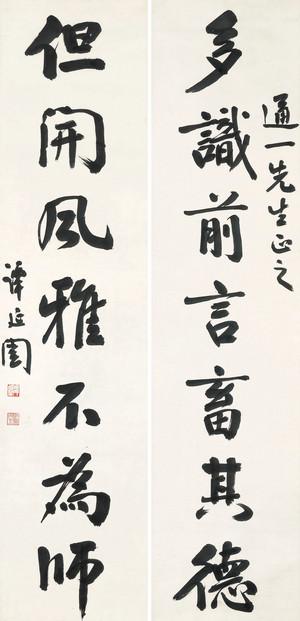 多識前言畜其德
通一先生正之
但開風雅不為師
譚延闓